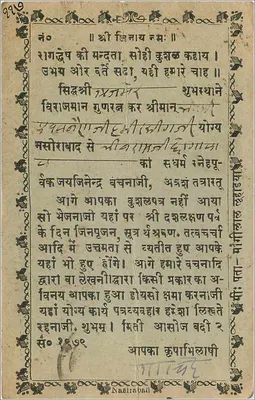 ११७
नं० ॥ श्री जिनाय नमः ॥
रागद्वेष की मन्दता, सोही कुशल कहाय ।
उभय ओर वर्ते सदा, यही हमारे चाह ॥
सिद्धश्री अजमेर शुभस्थाने
विराजमान गुणरत्न कर श्रीमान्
योग्य
नसीराबाद से
को सधर्म स्नेहपू-
र्वक जयजिनेन्द्र बंचनाजी, अत्रशं तत्रास्तु
आगे आपका कुशलपत्र नहीं आया
सो भेजनाजी यहां पर श्री दशलक्षण पर्व
के दिन जिनपूजन, सूत्र श्रवण, तत्वचर्चा
आदि में उत्तमता से व्यतीत हुए आपके
यहां भी हुए होंगे। आगे हमारे वचनादि
द्वारा वा लेखनीद्वारा किसी प्रकार का अ-
विनय आपका हुआ होयसो क्षमा करनाजी
यहां योग्य कार्य पत्रव्यवहार हमेशा लिखते
रहनाजी. शुभम् । मिती आसोज बदी २
सं० १९७९
आपका कृपाभिलाषी
Nasirabad